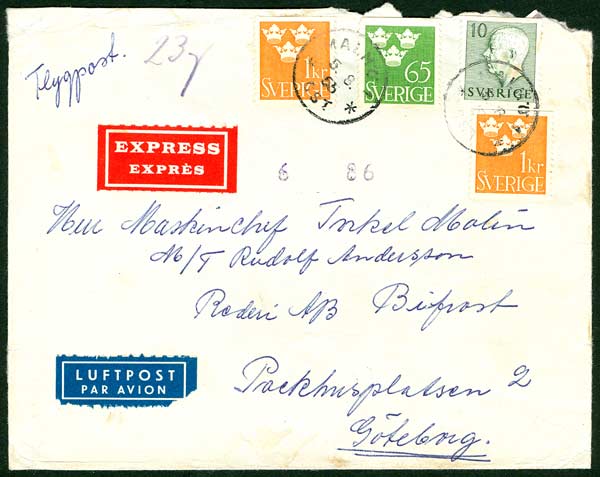 Flygpost.
1kr
SVERIGE
65
SVERIGE
10
SVERIGE
1kr
SVERIGE
EXPRESS
EXPRÈS
6 86
Herr Maskinchef Torkel Malin
M/T Rudolf Andersson
Rederi AB Bifrost
LUFTPOST
PAR AVION
Packhusplatsen 2
Göteborg.